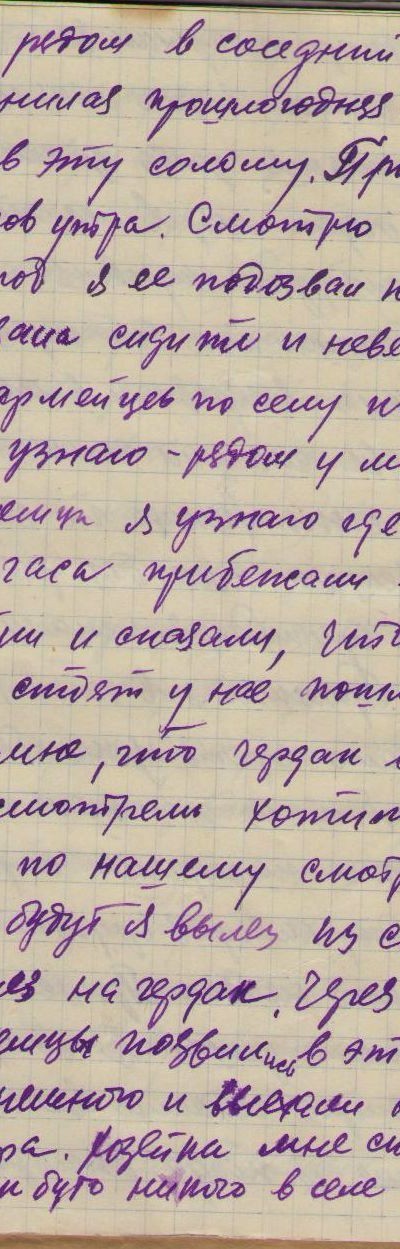 рядом в соседний
нилая прошлогодняя
в эту солому. Пр
ов утра. Смотрю
я ее подозвал н
сидит и неве
армейцев по селу п
узнаю - рядом у м
я узнаю где
часа прибежали
и сказали, что
стоят у нас пошл
мню, что чердак
смотрели хотит
по нашему смот
будут я вылез из с
ез на чердак. Через
немцы появились в эт
немного и выехали
ра. хозейка мне ск
н буто никого в селе